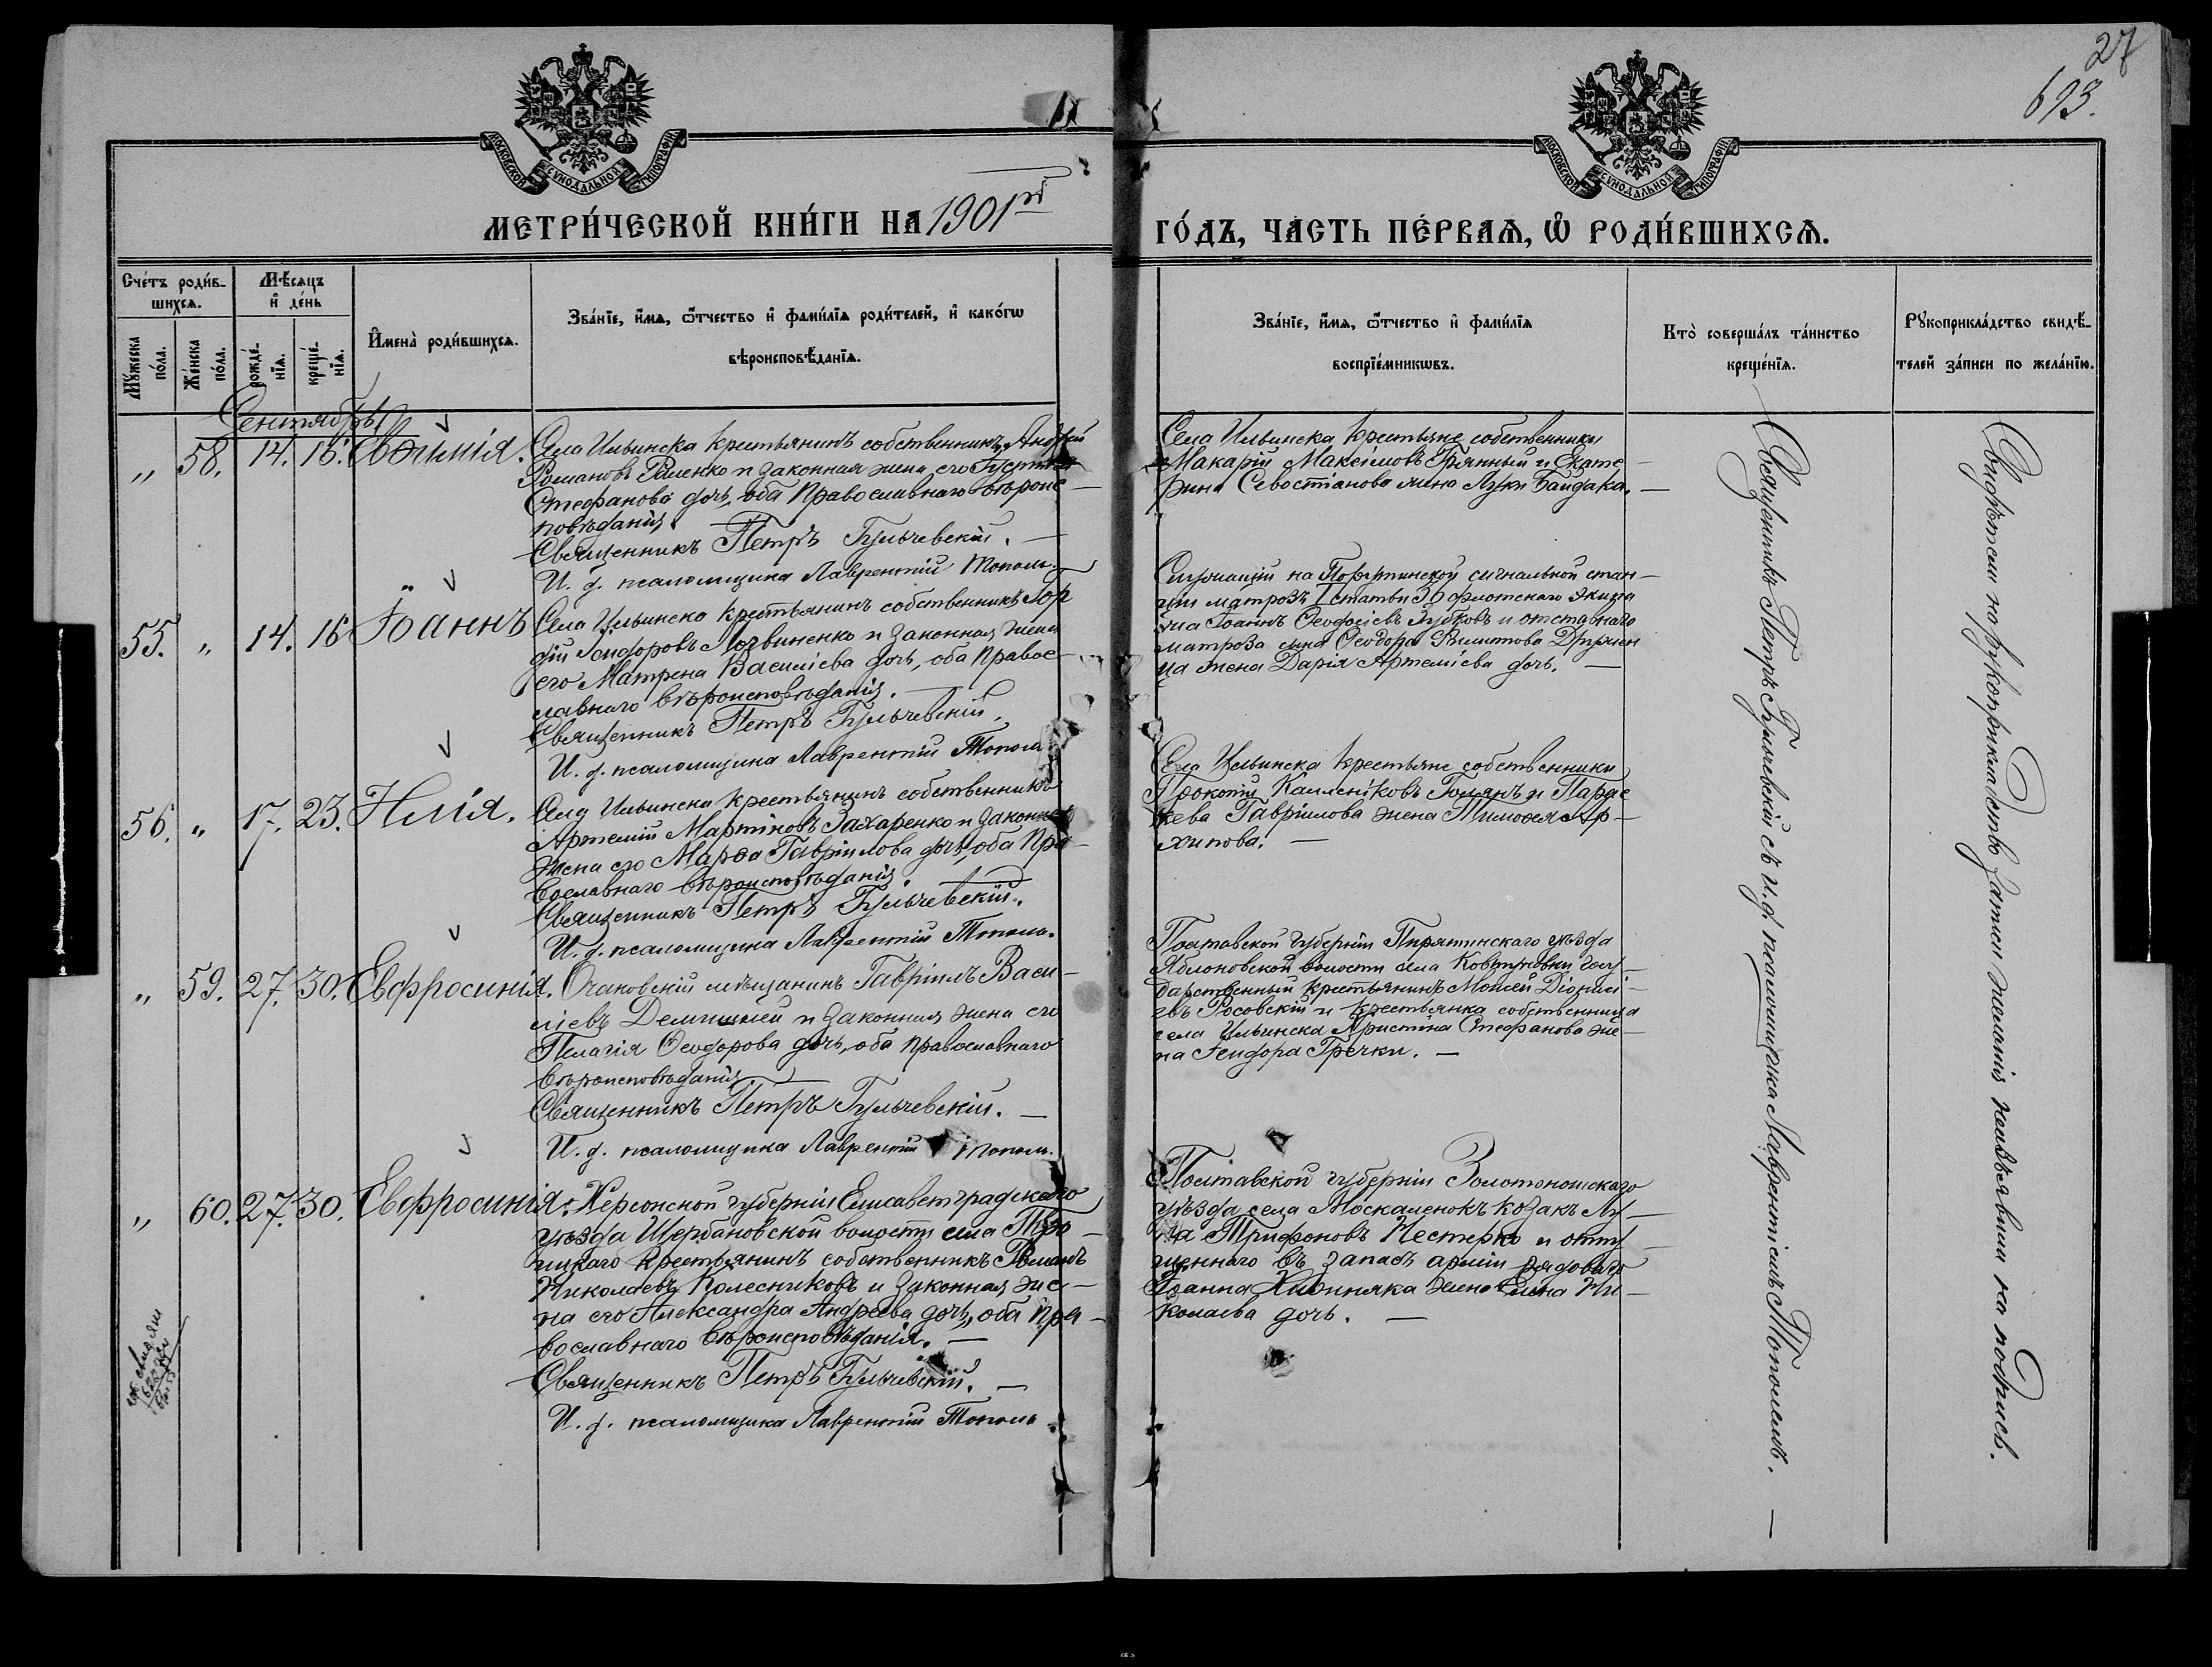 27
693.
МОСКОВСКОЙ СѴНОДАЛЬНОЙ ТИПОГРАФІИ
МОСКОВСКОЙ СѴНОДАЛЬНОЙ ТИПОГРАФІИ
МЕТРИ́ЧЕСКОЙ КНИ́ГИ НА 1901й
ГО́ДЪ, ЧА́СТЬ ПЕ́РВАѦ, Ѡ РОДИ́ВШИХСѦ.
Сче́тъ роди́в-
шихсѧ.
Мѣ́сѧцъ
и де́нь
Му́жеска по́ла.
Же́нска по́ла.
рожде́-нїѧ.
креще́-нїѧ.
Имена̀ роди́вшихсѧ.
Зва́нїе, и́мѧ, ѻ́тчество и фами́лїѧ роди́телей, и како́гѡ
вѣроисповѣ́данїѧ.
Зва́нїе, и́мѧ, ѻ́тчество и фами́лїѧ
воспрїе́мникѡвъ.
Кто̀ соверша́лъ та́инство
креще́нїѧ.
Рукоприкла́дство свидѣ́-
телей за́писи по жела́нїю.
Сентябрь
„ 58. 14. 16. Евѳимія.
Села Ильинска крестьянинъ собственникъ Андрей
Романовъ и законная жена его
Стефанова дочь, оба Православнаго вѣроис-
повѣданія.
Священникъ Петръ Гульчевскій. —
И. д. псаломщика Лаврентій Тополь.
Села Ильинска крестьяне собственники
Макарій Максимовъ Грянный и Екате-
рина Севостіанова жена Луки Байдака. —
55. „ 14. 16 Іоаннъ
Села Ильинско крестьянинъ собственникъ Гор-
дій Исидоровъ Логвиненко и законная жена
его Матрена Василіева дочь, оба Правос-
лавнаго вѣроисповѣданія. —
Священникъ Петръ Гульчевскій.
И. д. псаломщика Лаврентій Тополь
Служащій на сигнальной стан-
ціи матросъ I статьи 36 флотскаго экипа-
жа Іоаннъ Ѳеодосіевъ Зубковъ и отставнаго
матроса Ѳеодора
жена Дарія Артеміева дочь. —
56. „ 17. 23. Илія.
Села Ильинска крестьянинъ собственникъ
Артемій Мартиновъ Захаренко и законная
жена его Марѳа Гавріилова дочь, оба Пра-
вославнаго вѣроисповѣданія.
Священникъ Петръ Гульчевскій.
И. д. псаломщика Лаврентій Тополь.
Села Ильинска крестьяне собственники
Прокопій Каллениковъ и Парас-
кева Гавріилова жена Тимоѳея Ар-
хипова. —
„ 59. 27. 30. Евфросинія.
Очаковскій мѣщанинъ Гавріилъ Васи-
ліевъ и законная жена его
Пелагія Ѳеодорова дочь, оба православнаго
вѣроисповѣданія
Священникъ Петръ Гульчевскій. —
И. д. псаломщика Лаврентій Тополь.
Полтавской губерніи Пирятинскаго уѣзда
Яблоновской волости села Ковтуновки госу-
дарственный крестьянинъ Моисей Діонисі-
евъ Росовскій и крестьянка собственница
села Ильинска Христина Стефанова же-
на Исидора Гречки. —
„ 60. 27. 30. Евфросинія.
Херсонской губерніи Елисаветградскаго
уѣзда Щербановской волости села
крестьянинъ собственникъ Романъ
Николаевъ Колесниковъ и законная же-
на его Александра Андреева дочь, оба пра-
вославнаго вѣроисповѣданія. —
Священникъ Петръ Гульчевскій. —
И. д. псаломщика Лаврентій Тополь
Полтавской губерніи Золотоношскаго
уѣзда села Москаленокъ козакъ Лу-
ка Трифоновъ Нестерко и отпу-
щеннаго въ запасъ арміи рядоваго
Іоанна жена Елена Ни-
колаева дочь. —
Священникъ Петръ Гульчевскій съ и. д. псаломщика Лаврентіемъ Тополемъ. —
Свидѣтели на рукоприкладство записи желанія неизъявили на подпись.